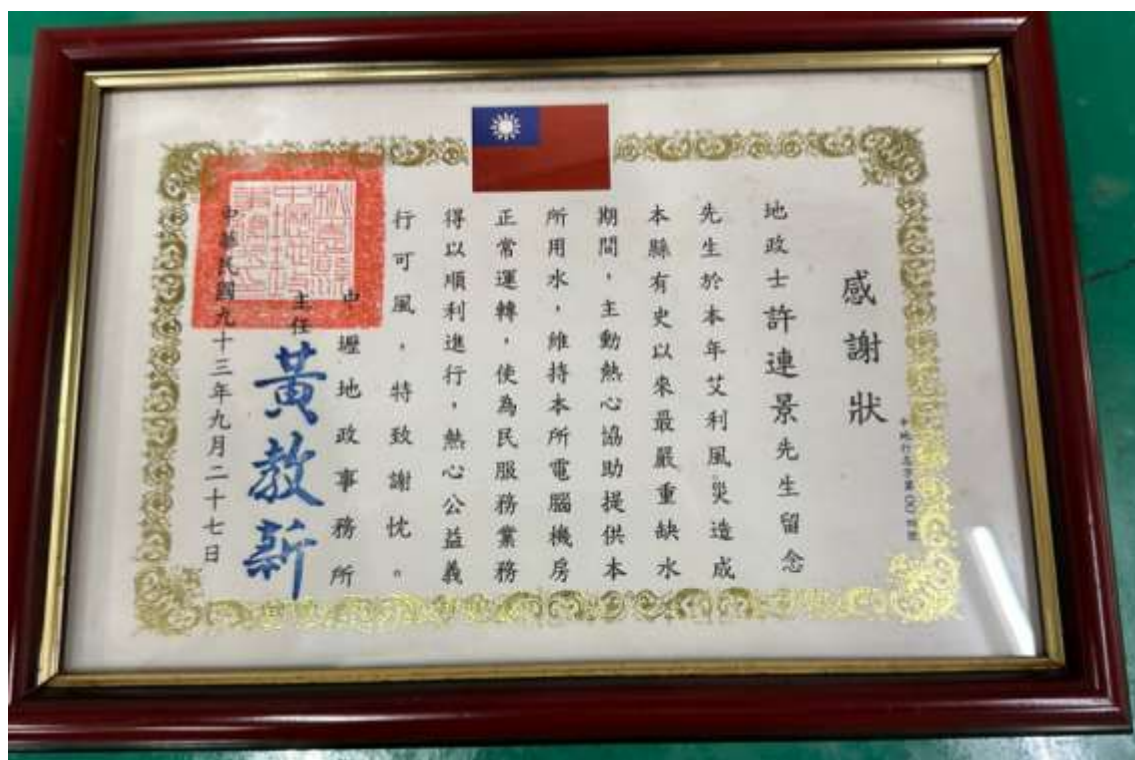 感謝狀
地政士許連景先生留念
先生於本年艾利風災造成
本縣有史以來最嚴重缺水
期間，主動熱心協助提供本
所用水，維持本所電腦機房
正常運轉，使為民服務業務
得以順利進行，熱心公益義
行可風，特致謝忱。
中壢地政事務所
主任 黃敎新
中華民國九十三年九月二十七日